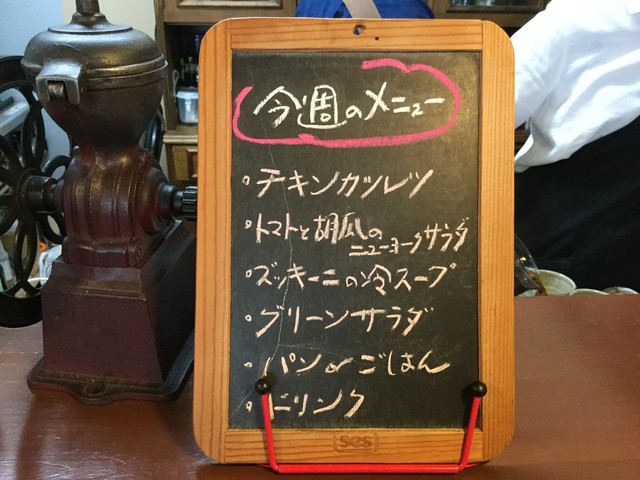 今週のメニュー
・チキンカツレツ
・トマトと胡瓜の
ニューヨークサラダ
・ズッキーニの冷スープ
・グリーンサラダ
・パンorごはん
・ドリンク
ses